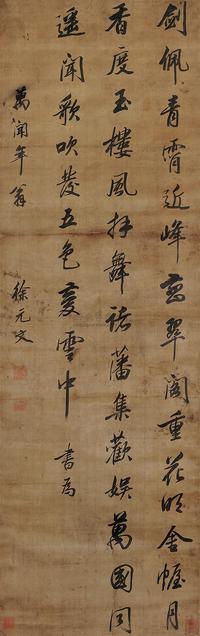 劍佩青霄近峰巒翠閣重花明金幄月
香度玉樓風抃舞諸藩集歡娛萬國同
遙聞歌吹發五色慶雲中 書為
萬聞年翁 徐元文